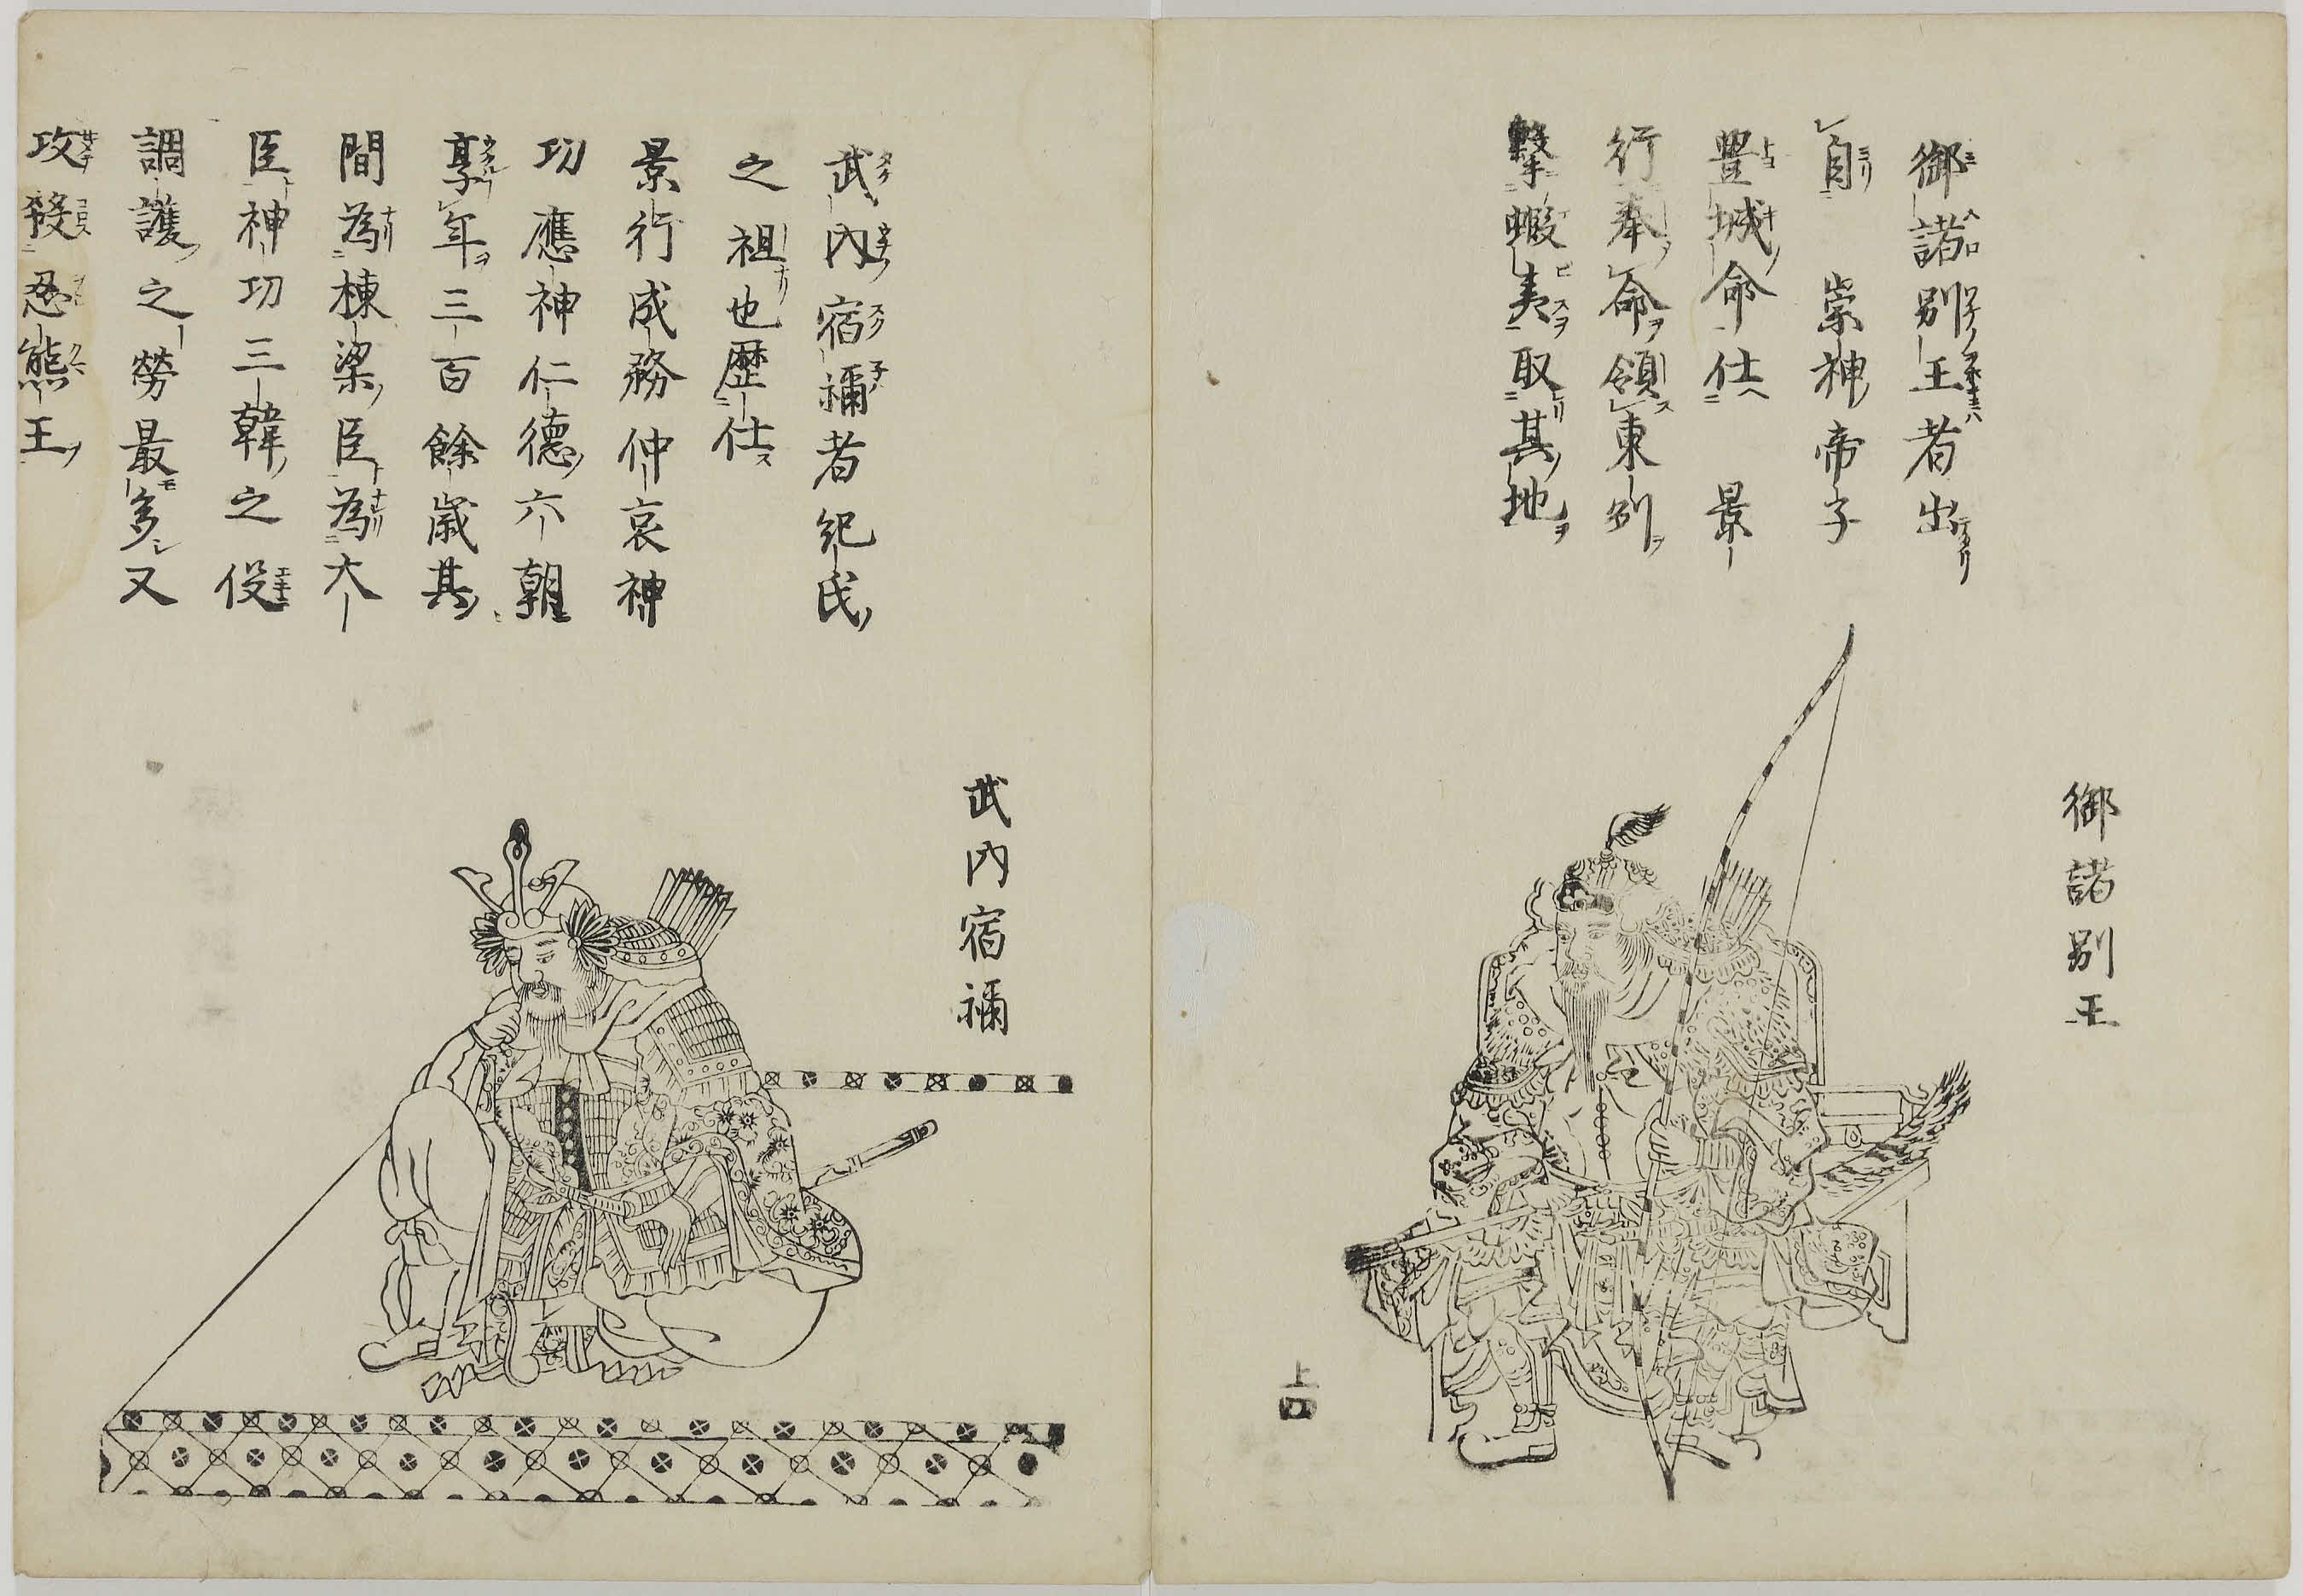 御諸別王
御諸別王者出
自 崇神帝子
豊城命仕 景
行奉命領東列
撃蝦夷取其地
上 口
武内宿禰
武内宿禰者紀氏
之祖也歴仕
景行成務仲哀神
功應神仁德六朝
享年三百餘歳其
間為棟梁臣為大
臣神功三韓之役
調護之勞最多又
攻殺忍熊王